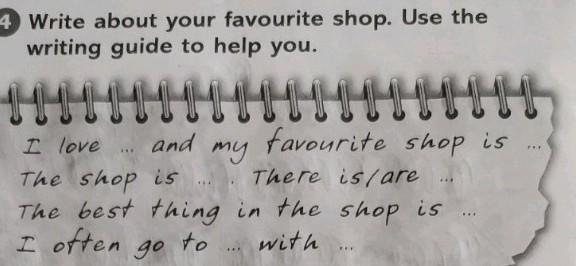 4 Write about your favourite shop. Use the
writing guide to help you.
I love ... and my favourite shop is ...
The shop is .... There is/are ...
The best thing in the shop is ...
I often go to ... with ...